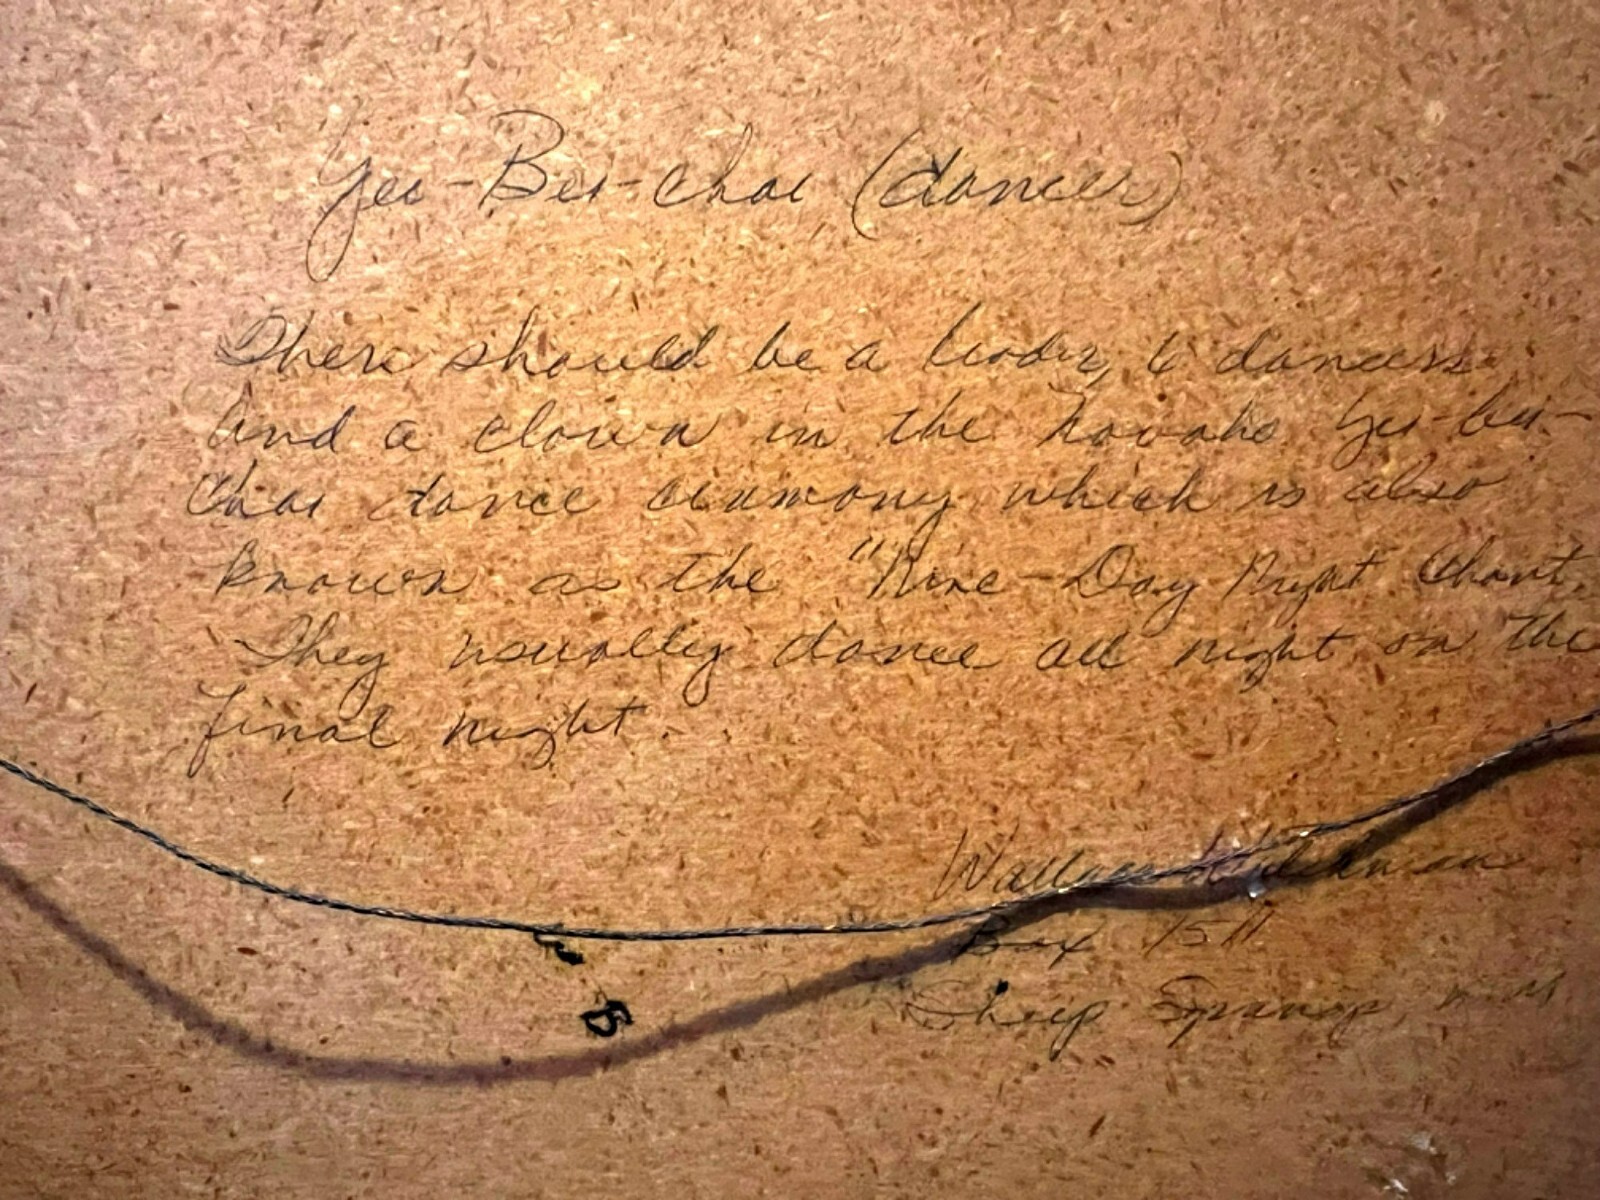 Yei-Bei-chai (dancer)
There should be a leader, 6 dancers
and a clown in the Navaho Yei-bei-
Chai dance ceremony which is also
known as the "Nine-Day Night Chant.
They usually dance all night on the
final night.
Wallace
Box 1511
Sheep Springs, N.M